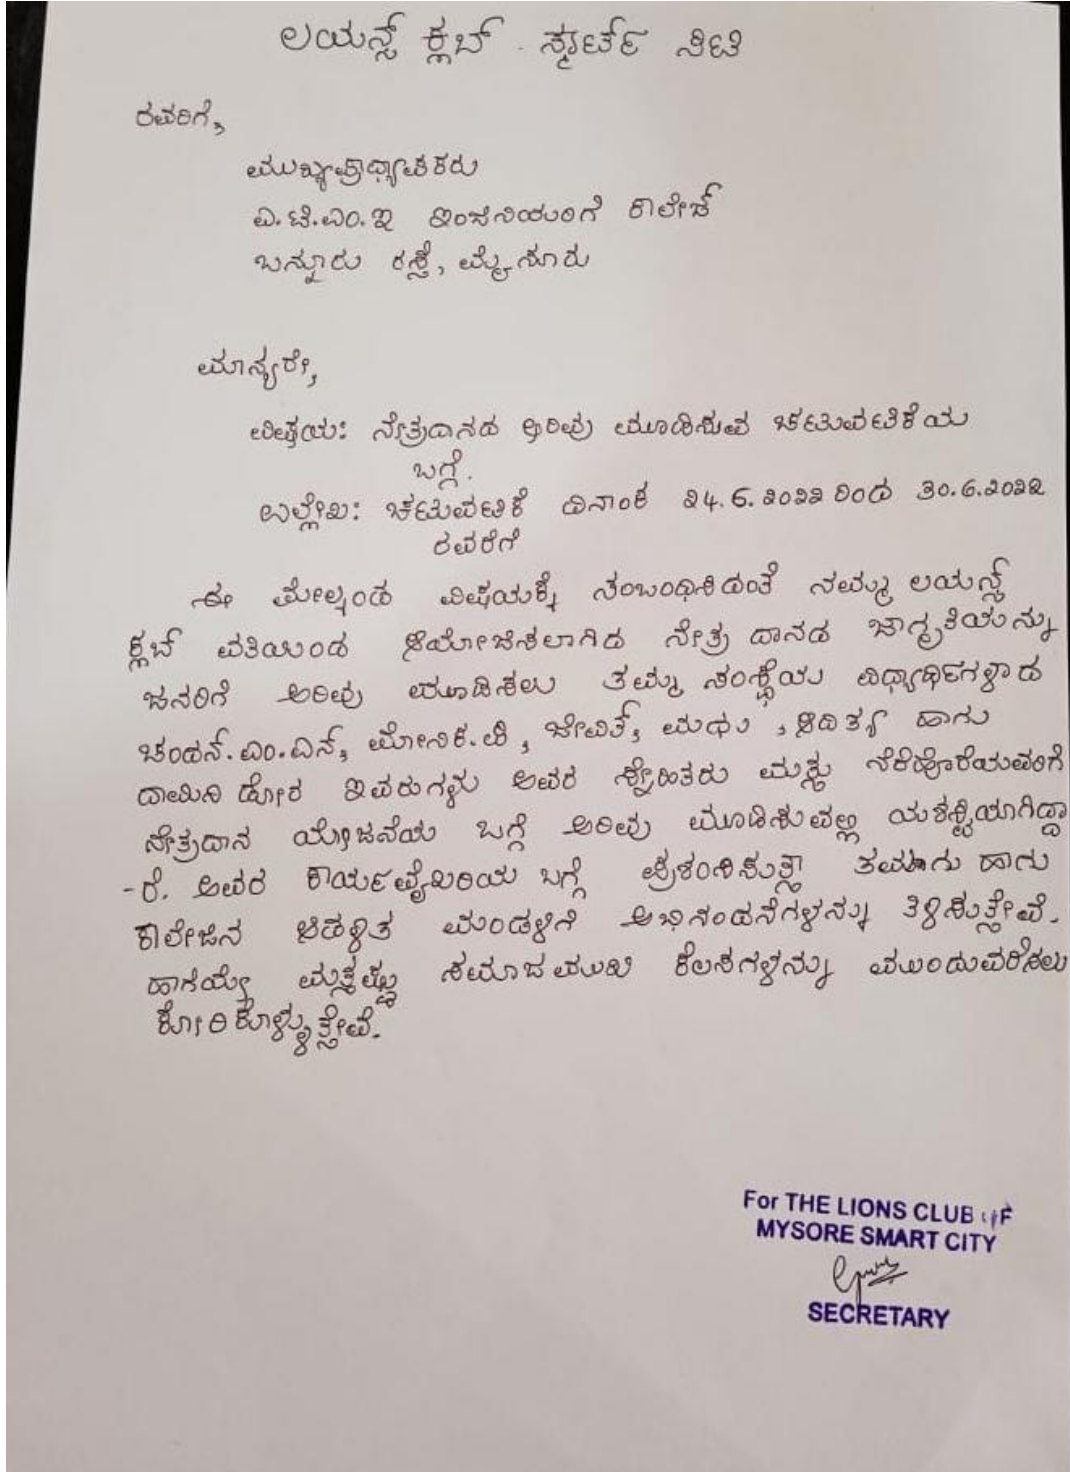 ಲಯನ್ಸ್ ಕ್ಲಬ್ . ಸ್ಮಾರ್ಟ್ ಸಿಟಿ
ರವರಿಗೆ,
ಮುಖ್ಯಪ್ರಾಧ್ಯಾಪಕರು
ಎ.ಟಿ.ಎಂ.ಇ ಇಂಜಿನಿಯರಿಂಗೆ ಕಾಲೇಜ್
ಬನ್ನೂರು ರಸ್ತೆ, ಮೈಸೂರು
ಮಾನ್ಯರೇ,
ವಿಷಯ: ನೇತ್ರದಾನದ ಅರಿವು ಮೂಡಿಸುವ ಚಟುವಟಿಕೆಯ
ಬಗ್ಗೆ.
ಉಲ್ಲೇಖ: ಚಟುವಟಿಕೆ ದಿನಾಂಕ ೨4.6.೨೦೨೨ ರಿಂದ ೩0.6.೨೦೨೨
ರವರೆಗೆ
ಈ ಮೇಲ್ಕಂಡ ವಿಷಯಕ್ಕೆ ಸಂಬಂಧಿಸಿದಂತೆ ನಮ್ಮ ಲಯನ್ಸ್
ಕ್ಲಬ್ ವತಿಯಿಂದ ಆಯೋಜಿಸಲಾಗಿದ ನೇತ್ರ ದಾನದ ಜಾಗೃತಿಯನ್ನು
ಜನರಿಗೆ ಅರಿವು ಮೂಡಿಸಲು ತಮ್ಮ ಸಂಸ್ಥೆಯ ವಿಧ್ಯಾರ್ಥಿಗಳಾದ
ಚಂದನ್.ಎಂ.ಎನ್, ಮೋನಿಕ.ಪಿ, ಜೇವಿತ್, ಮಧು, ಆದಿತ್ಯ ಹಾಗು
ದಾಮಿನಿ ಡೋರ ಇವರುಗಳು ಅವರ ಸ್ನೇಹಿತರು ಮತ್ತು ನೆರೆಹೊರೆಯವರಿಗೆ
ನೇತ್ರದಾನ ಯೋಜನೆಯ ಬಗ್ಗೆ ಅರಿವು ಮೂಡಿಸುವಲ್ಲಿ ಯಶಸ್ವಿಯಾಗಿದ್ದಾ
-ರೆ. ಅವರ ಕಾರ್ಯವೈಖರಿಯ ಬಗ್ಗೆ ಪ್ರಶಂಸಿಸುತ್ತಾ ತಮಗು ಹಾಗು
ಕಾಲೇಜಿನ ಆಡಳಿತ ಮಂಡಳಿಗೆ ಅಭಿನಂದನೆಗಳನ್ನು ತಿಳಿಸುತ್ತೇವೆ.
ಹಾಗೆಯ್ಯೇ ಮತ್ತಷ್ಟು ಸಮಾಜಮುಖಿ ಕೆಲಸಗಳನ್ನು ಮುಂದುವರಿಸಲು
ಕೋರಿಕೊಳ್ಳುತ್ತೇವೆ.
For THE LIONS CLUB OF
MYSORE SMART CITY
SECRETARY